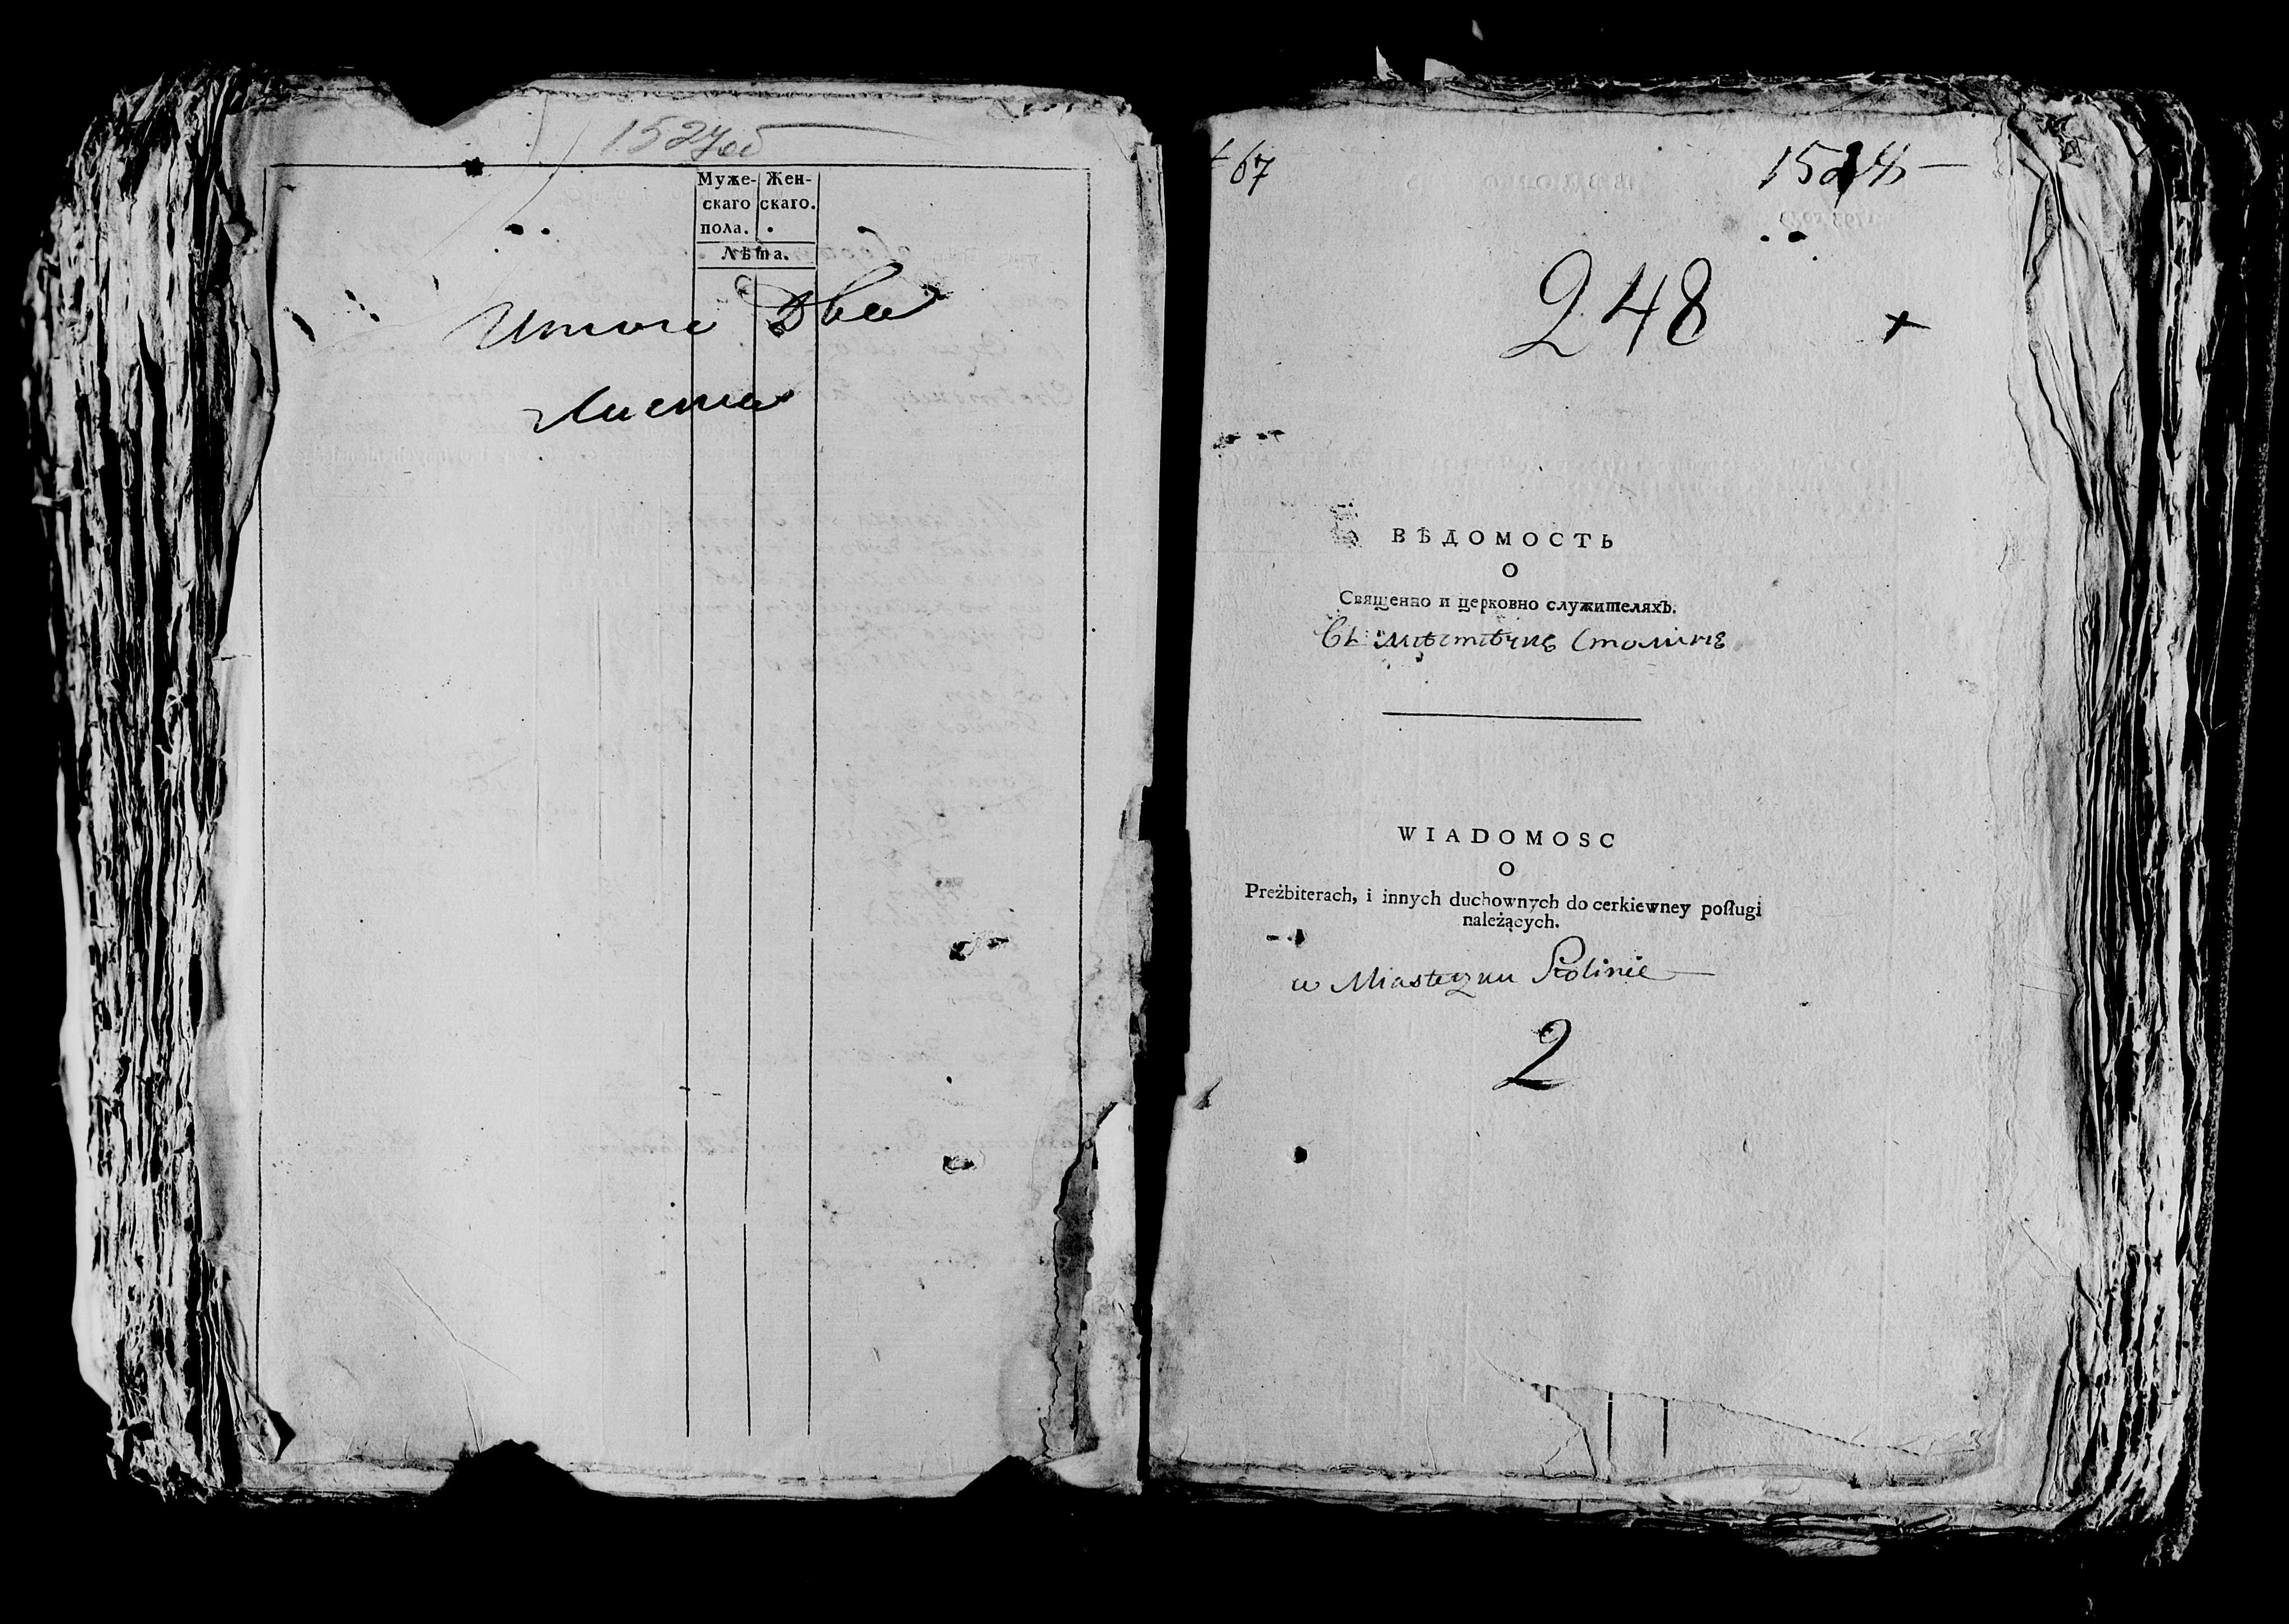 1527об
Муже- Жен-
скаго скаго.
пола.
Лѣта.
Итого Два
Листа
67
248
+
ВѢДОМОСТЬ
О
Священно и церковно служителяхЪ.
въ мѣстѣчкѣ Столинѣ
WIADOMOSC
O
Preżbiterach, i innych duchownych do cerkiewney posługi
należących.
w Miasteczku Stolinie
2